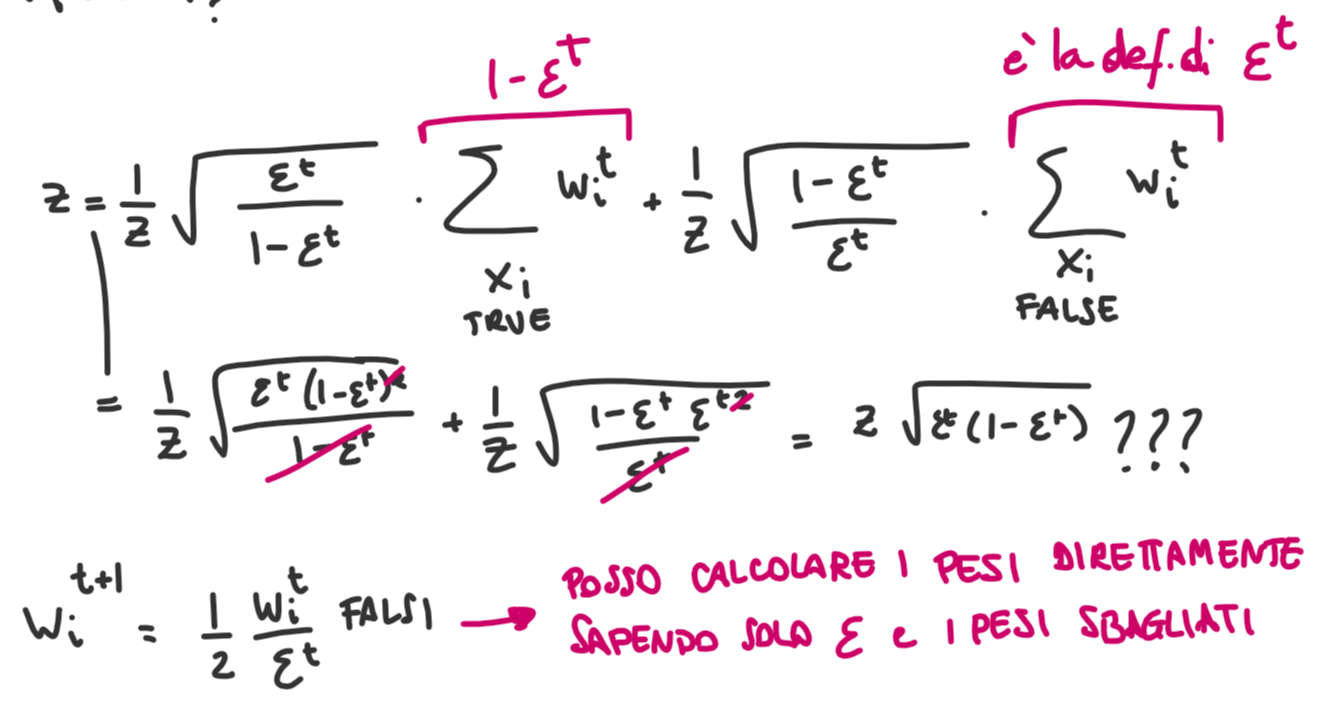 ?
1-ε^t
è la def. di ε^t
z = 1/z √(ε^t/(1-ε^t)) · Σ w_i^t + 1/z √((1-ε^t)/ε^t) · Σ w_i^t
x_i x_i
TRUE FALSE
= 1/z √(ε^t (1-ε^t)^2/(1-ε^t)) + 1/z √(1-ε^t ε^t2/ε^t) = z √(ε^t (1-ε^t)) ???
w_i^t+1 = 1/2 w_i^t/ε^t FALSI → POSSO CALCOLARE I PESI DIRETTAMENTE
SAPENDO SOLO ε e I PESI SBAGLIATI